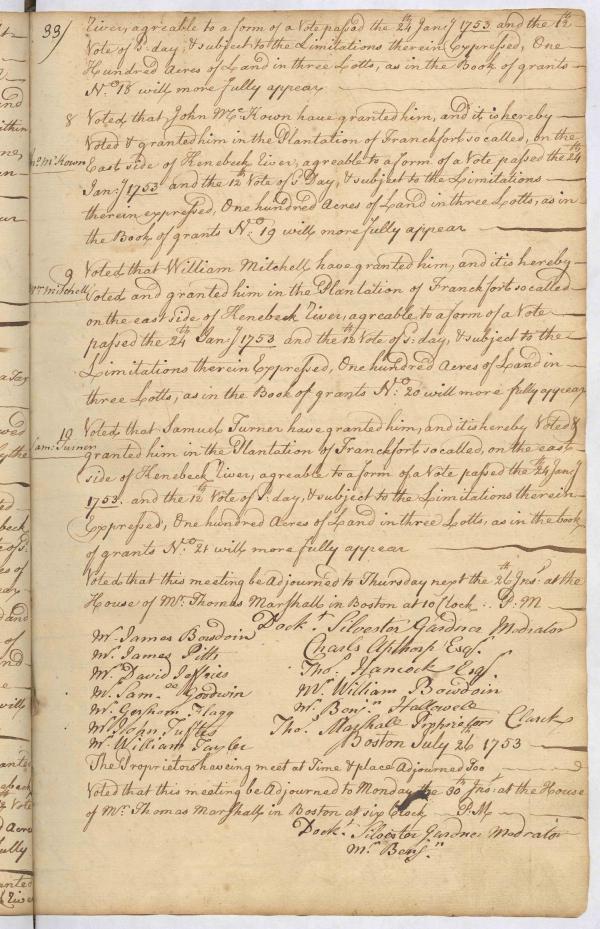 33/
River, agreable to a form of a Vote passed the 24th Janry 1753 and the 12th
Vote of sd: day, & subject to the Limitations therein Expressed, One
Hundred Acres of Land in three Lotts, as in the Book of grants
No. 18 will more fully appear
8 Voted that John McKown have granted him, and it is hereby
Jno. McKown
Voted & granted him in the Plantation of Franckfort so called, on the
East side of Kenebeck River, agreable to a form of a Vote passed the 24th
Janry 1753 and the 12th Vote of sd Day, & subject to the Limitations
therein expressed, One hundred Acres of Land in three Lotts, as in
the Book of grants No. 19 will more fully appear
9 Voted that William Mitchell have granted him, and it is hereby
Wm Mitchell
Voted and granted him in the Plantation of Franckfort so called
on the east side of Kenebeck River, agreable to a form of a Vote
passed the 24th Janry 1753 and the 12th Vote of sd: day, & subject to the
Limitations therein Expressed, One hundred Acres of Land in
three Lotts, as in the Book of grants No. 20 will more fully appear
10 Voted that Samuel Turner have granted him, and it is hereby Voted &
Sam: Turner
granted him in the Plantation of Franckfort so called, on the east
side of Kenebeck River, agreable to a form of a Vote passed the 24th Janry
1753. and the 12th Vote of sd: day, & subject to the Limitations therein
Expressed, One hundred Acres of Land in three Lotts, as in the book
of grants No. 21 will more fully appear
Voted that this meeting be Adjourned to Thursday next the 26th Inst: at the
House of Mr. Thomas Marshall in Boston at 10 Clock P:M
Dockr. Silvester Gardner Modrator
Mr. James Bowdoin Charles Apthorp Esqr.
Mr. James Pitts Thos. Hancock Esqr
Mr. David Jeffries Mr William Bowdoin
Mr. Saml. Goodwin Mr. Benjn. Hallowell
Mr. Gershom Flagg Thos. Marshall Proprietors Clerk
Mr. John Tufts Boston July 26 1753
Mr. William Tayler
The Proprietors haveing meet at Time & place Adjourned too
Voted that this meeting be Adjourned to Monday the 30th Inst: at the House
of Mr. Thomas Marshall in Boston at six Clock P.M
Dockr. Silvester Gardner Modrator
Mr. Benjn.